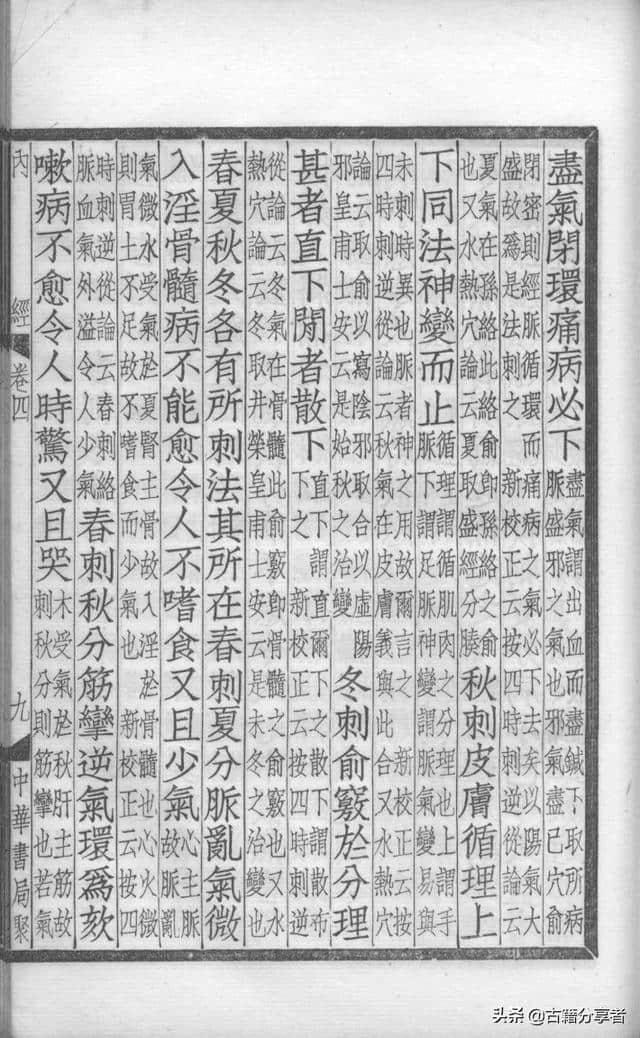 盡氣閉環痛病必下
盡氣謂出血而盡鍼下取所病
脈盛邪之氣也邪氣盡已穴俞
閉密則經脈循環而痛病之氣必下去矣以陽氣大
盛故爲是法刺之 新校正云按四時刺逆從論云
夏氣在孫絡此絡俞即孫絡之俞
也又水熱穴論云夏取盛經分腠
秋刺皮膚循理上
下同法神變而止
循理謂循肌肉之分理也上謂手
脈下謂足脈神變謂脈氣變易與
未刺時異也脈者神之用故爾言之 新校正云按
四時刺逆從論云秋氣在皮膚義與此合又水熱穴
論云取俞以寫陰邪取合以虛陽
邪皇甫士安云是始秋之治變
冬刺俞竅於分理
甚者直下閒者散下
直下謂直爾下之散下謂散布
下之 新校正云按四時刺逆
從論云冬氣在骨髓此俞竅即骨髓之俞竅也又水
熱穴論云冬取井滎皇甫士安云是末冬之治變也
春夏秋冬各有所刺法其所在春刺夏分脈亂氣微
入淫骨髓病不能愈令人不嗜食又且少氣
心主脈
故脈亂
氣微水受氣於夏腎主骨故入淫於骨髓也心火微
則胃土不足故不嗜食而少氣也 新校正云按四
時刺逆從論云春刺絡
脈血氣外溢令人少氣
春刺秋分筋攣逆氣環爲欬
嗽病不愈令人時驚又且哭
木受氣於秋肝主筋故
刺秋分則筋攣也若氣
內經 卷四 九 中華書局聚
头条 @古籍分享者